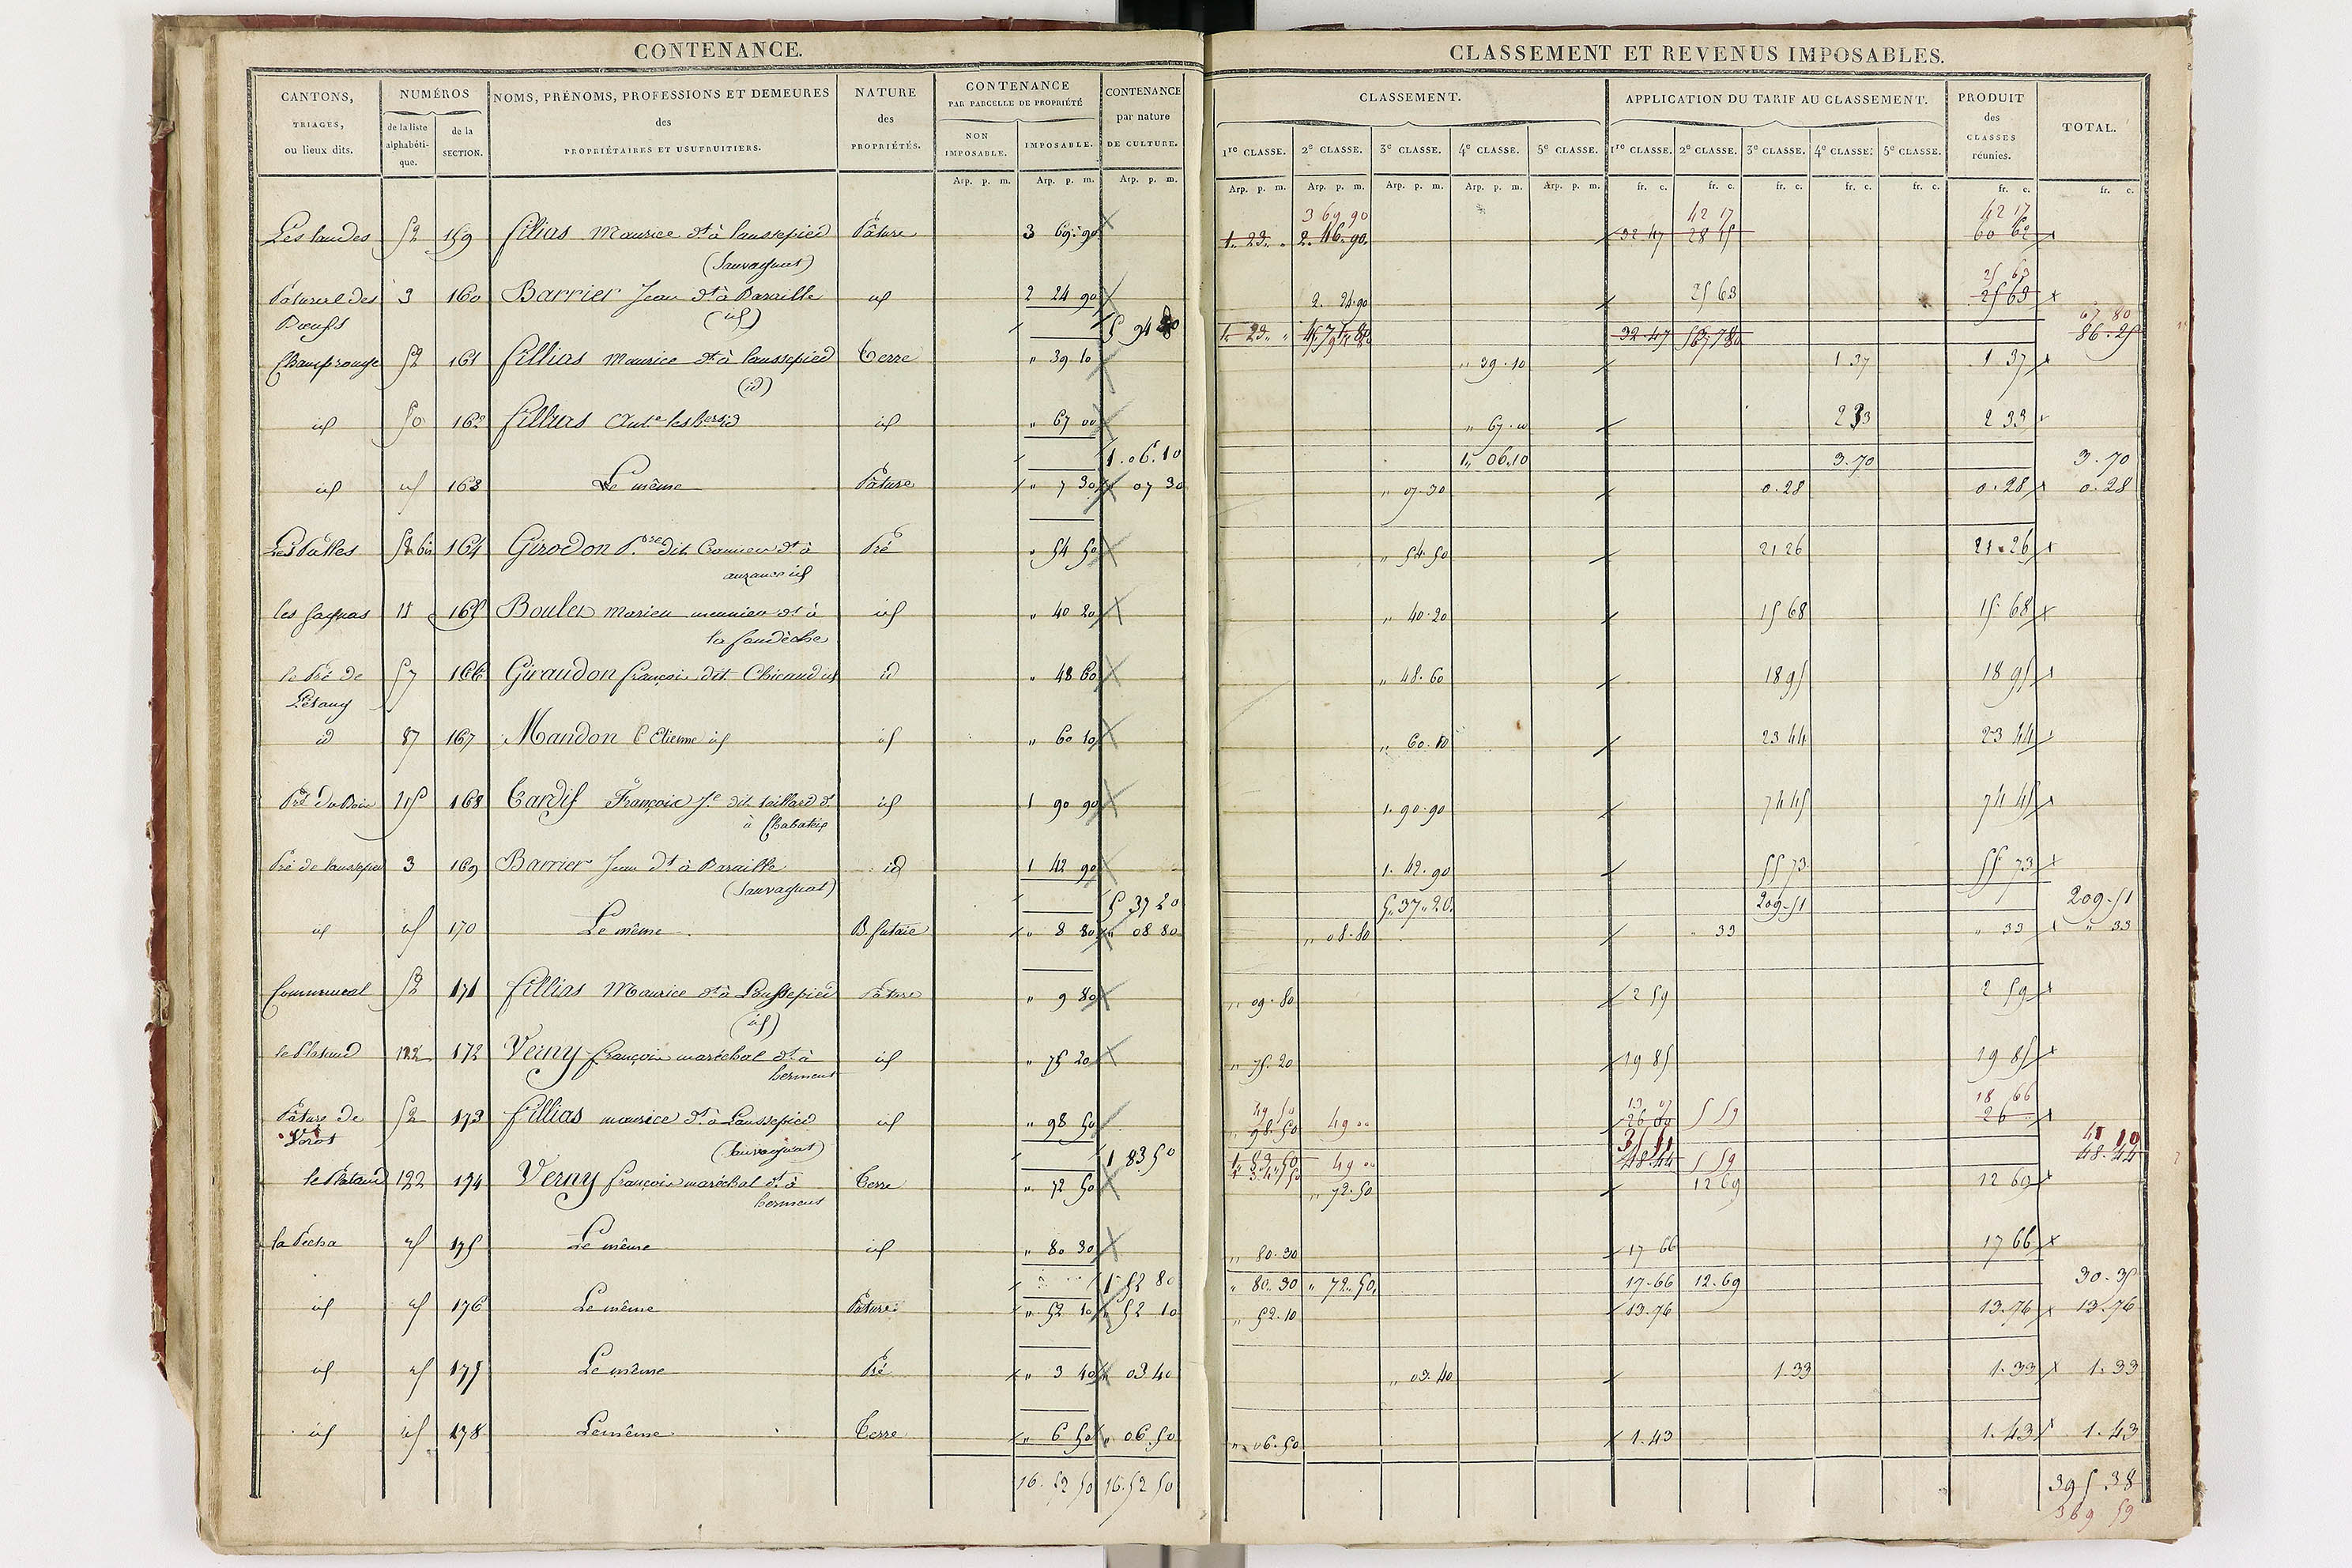 CONTENANCE.
CANTONS, TRIAGES, ou lieux dits.
NUMÉROS
de la liste alphabétique.
de la SECTION.
NOMS, PRÉNOMS, PROFESSIONS ET DEMEURES des PROPRIÉTAIRES ET USUFRUITIERS.
NATURE des PROPRIÉTÉS.
CONTENANCE PAR PARCELLE DE PROPRIÉTÉ
NON IMPOSABLE.
IMPOSABLE.
CONTENANCE par nature DE CULTURE.
Arp. p. m. Arp. p. m. Arp. p. m.
Les landes 52 159 fillias Maurice dt à laussepied Pâture 3 69 90
(Sauvagnat)
Pâtural des 3 160 Barrier Jean dt à Baraille id 2 24 90
Bœufs (id) 5 94
Champ rouge 52 161 fillias Maurice dt à laussepied Terre " 39 10
(id)
id 50 162 fillias id " 67 00
1.06.10
id id 163 Le même Pâture " 7 30 " 07 30
52 bis 164 Girodon dit dt à Pré " 54 50
auzances id
11 165 Boulet meunier dt à id " 40 20
le Pré de 57 166 Giraudon françois dit id id " 48 60
L'étang
id 87 167 Mandon Etienne id id " 60 10
Pré du Bois 115 168 Tardif François Je dit taillard dt id 1 90 90
à
Pré de laussepied 3 169 Barrier Jean dt à Baraille id 1 42 90
(Sauvagnat)
5 37 20
id id 170 Le même B. futaie " 8 80 " 08 80
Communal 52 171 fillias Maurice dt à Laussepied Pâture " 9 80
(id)
122 172 Verny françois maréchal dt à id " 75 20
hermens
Pâture de 52 173 fillias maurice dt à Laussepied id " 98 50
(Sauvagnat)
1 83 50
122 174 Verny françois maréchal dt à Terre " 72 50
hermens
la Pecha id 175 Le même id " 80 30
1 52 80
id id 176 Le même Pâture " 52 10 " 52 10
id id 177 Le même Pré " 3 40 " 03 40
id id 178 Le même Terre " 6 50 " 06 50
16.52 50 16.52 50
CLASSEMENT ET REVENUS IMPOSABLES.
CLASSEMENT.
APPLICATION DU TARIF AU CLASSEMENT.
PRODUIT des CLASSES réunies.
TOTAL.
1re CLASSE. 2e CLASSE. 3e CLASSE. 4e CLASSE. 5e CLASSE. 1re CLASSE. 2e CLASSE. 3e CLASSE. 4e CLASSE. 5e CLASSE.
Arp. p. m. Arp. p. m. Arp. p. m. Arp. p. m. Arp. p. m. fr. c. fr. c. fr. c. fr. c. fr. c. fr. c. fr. c.
3 69 90 42 17 42 17
1. 23. " 2. 46. 90 32 47 28 15 60 62
25 63
2. 24. 90 25 63 25 63
67 80
1. 23. " 32.47 86.25
" 39.10 1.37 1.37
" 67.00 2 33 2 33
1" 06.10 3.70 3.70
" 07.30 0.28 0.28 0.28
" 54.50 21 26 21.26
" 40.20 15 68 15.68
" 48.60 18 95 18 95
" 60.10 23 44 23 44
1. 90.90 74 45 74 45
1. 42.90 55 73 55 73
5"37"20 209.51 209.51
" 08.80 " 33 " 33 " 33
" 09.80 2 59 2 59
" 75.20 19 85 19 85
49 50 13 07 18 66
" 98.50 49 00 26 00 5 59 26 "
41 10
49 00 48.44 5 59 48.44
" 72.50 12 69 12 69
" 80.30 17 66 17 66
" 80.30 " 72.50 17.66 12.69 30.35
" 52.10 13.76 13.76 13.76
" 03.40 1.33 1.33 1.33
" 06.50 1.43 1.43 1.43
395.38
369 59